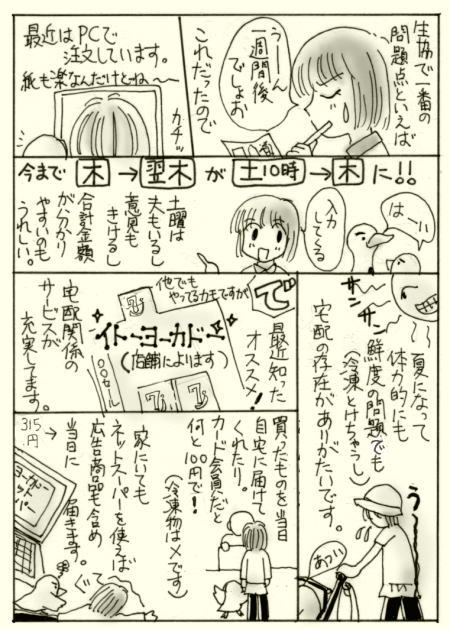 生協で一番の
問題点といえば
うーーん
一週間後
でしょお
これだったので
最近はPCで
注文しています。
紙も楽なんだけどね〜〜
カチッ
今まで 木 → 翌木 が 土10時 → 木 に!!
はーい
入力
してくる
土曜は
夫もいるし
意見も
きけるし
合計金額
がわかり
やすいのも
うれしい。
サン
サン
夏になって
体力的にも
鮮度の問題でも
(冷凍とけちゃうし)
宅配の存在がありがたいです。
う〜
あつい
で
最近知った
オススメ!
他でも
やってるカモですが
イトーヨーカドー
(店舗によります)
宅配関係の
サービスが
充実してます。
買ったものを当日
自宅に届けて
くれたり。
カード会員だと
何と100円で!
(冷凍物は×です)
家にいても
ネットスーパーを使えば
広告商品も含め
当日に
届きます。
315
円→
ネット
スーパー